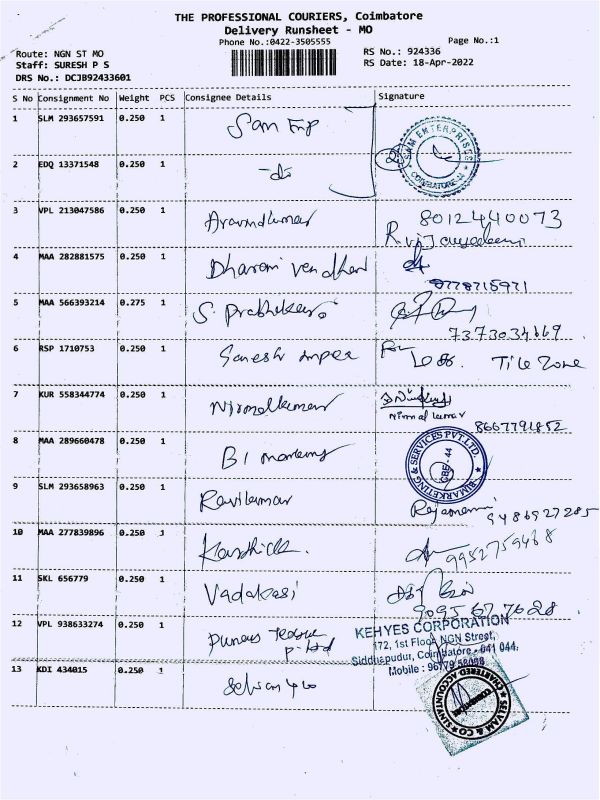 THE PROFESSIONAL COURIERS, Coimbatore
Delivery Runsheet - MO
Phone No.:0422-3505555
Page No.:1
Route: NGN ST MO
RS No.: 924336
Staff: SURESH P S
RS Date: 18-Apr-2022
DRS No.: DCJB92433601
S No Consignment No Weight PCS Consignee Details Signature
1 SLM 293657591 0.250 1 Sam Enp
SNM ENTERPRISES
COIMBATORE-44
2 EDQ 13371548 0.250 1 -do
3 VPL 213047586 0.250 1 Aravindkumar 8012440073
4 MAA 282881575 0.250 1 Dharani
5 MAA 566393214 0.275 1 S. Prabhakar
6 RSP 1710753 0.250 1 Ganesh For Tile Zone
7 KUR 558344774 0.250 1 Nirmalkumar
Nirmal kumar
8667791852
8 MAA 289660478 0.250 1 BI
BIMARKETING & SERVICES PVT.LTD.
CBE-44
9 SLM 293658963 0.250 1 Ravikumar Rajamani
9486927285
10 MAA 277839896 0.250 1 Karthick. 9952759468
11 SKL 656779 0.250 1 Vadakasi
9095677628
12 VPL 938633274 0.250 1 P-Ltd
KEHYES CORPORATION
172, 1st Floor, NGN Street,
Siddhapudur, Coimbatore - 641 044.
Mobile : 96779 58098
13 KDI 434015 0.250 1 Selvam & co
SELVAM & CO
CHARTERED ACCOUNTANTS
COIMBATORE